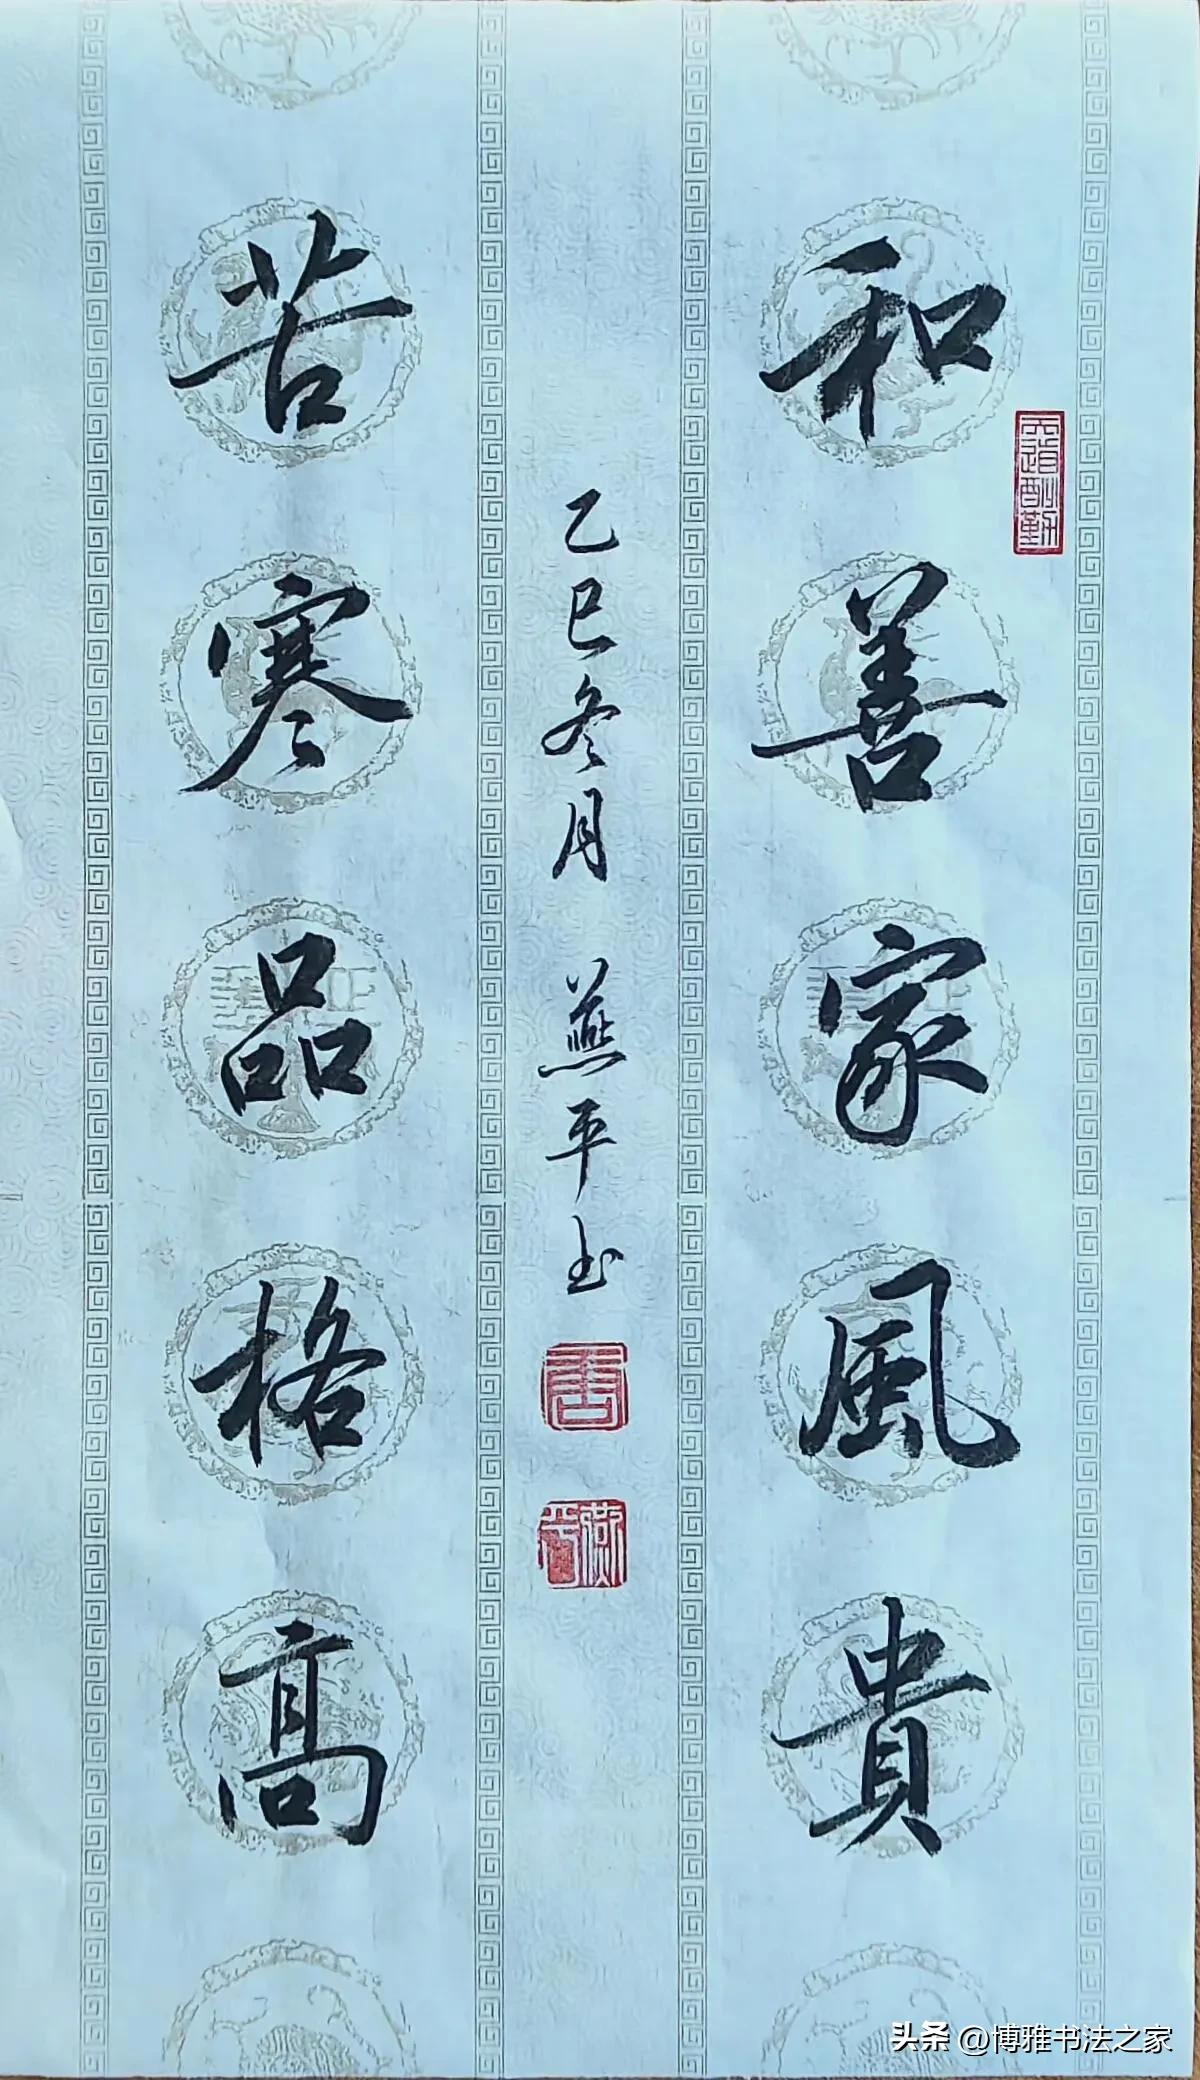 和善家風貴
苦寒品格高
乙巳冬月 燕平书
天道酬勤
燕平
头条 @博雅书法之家